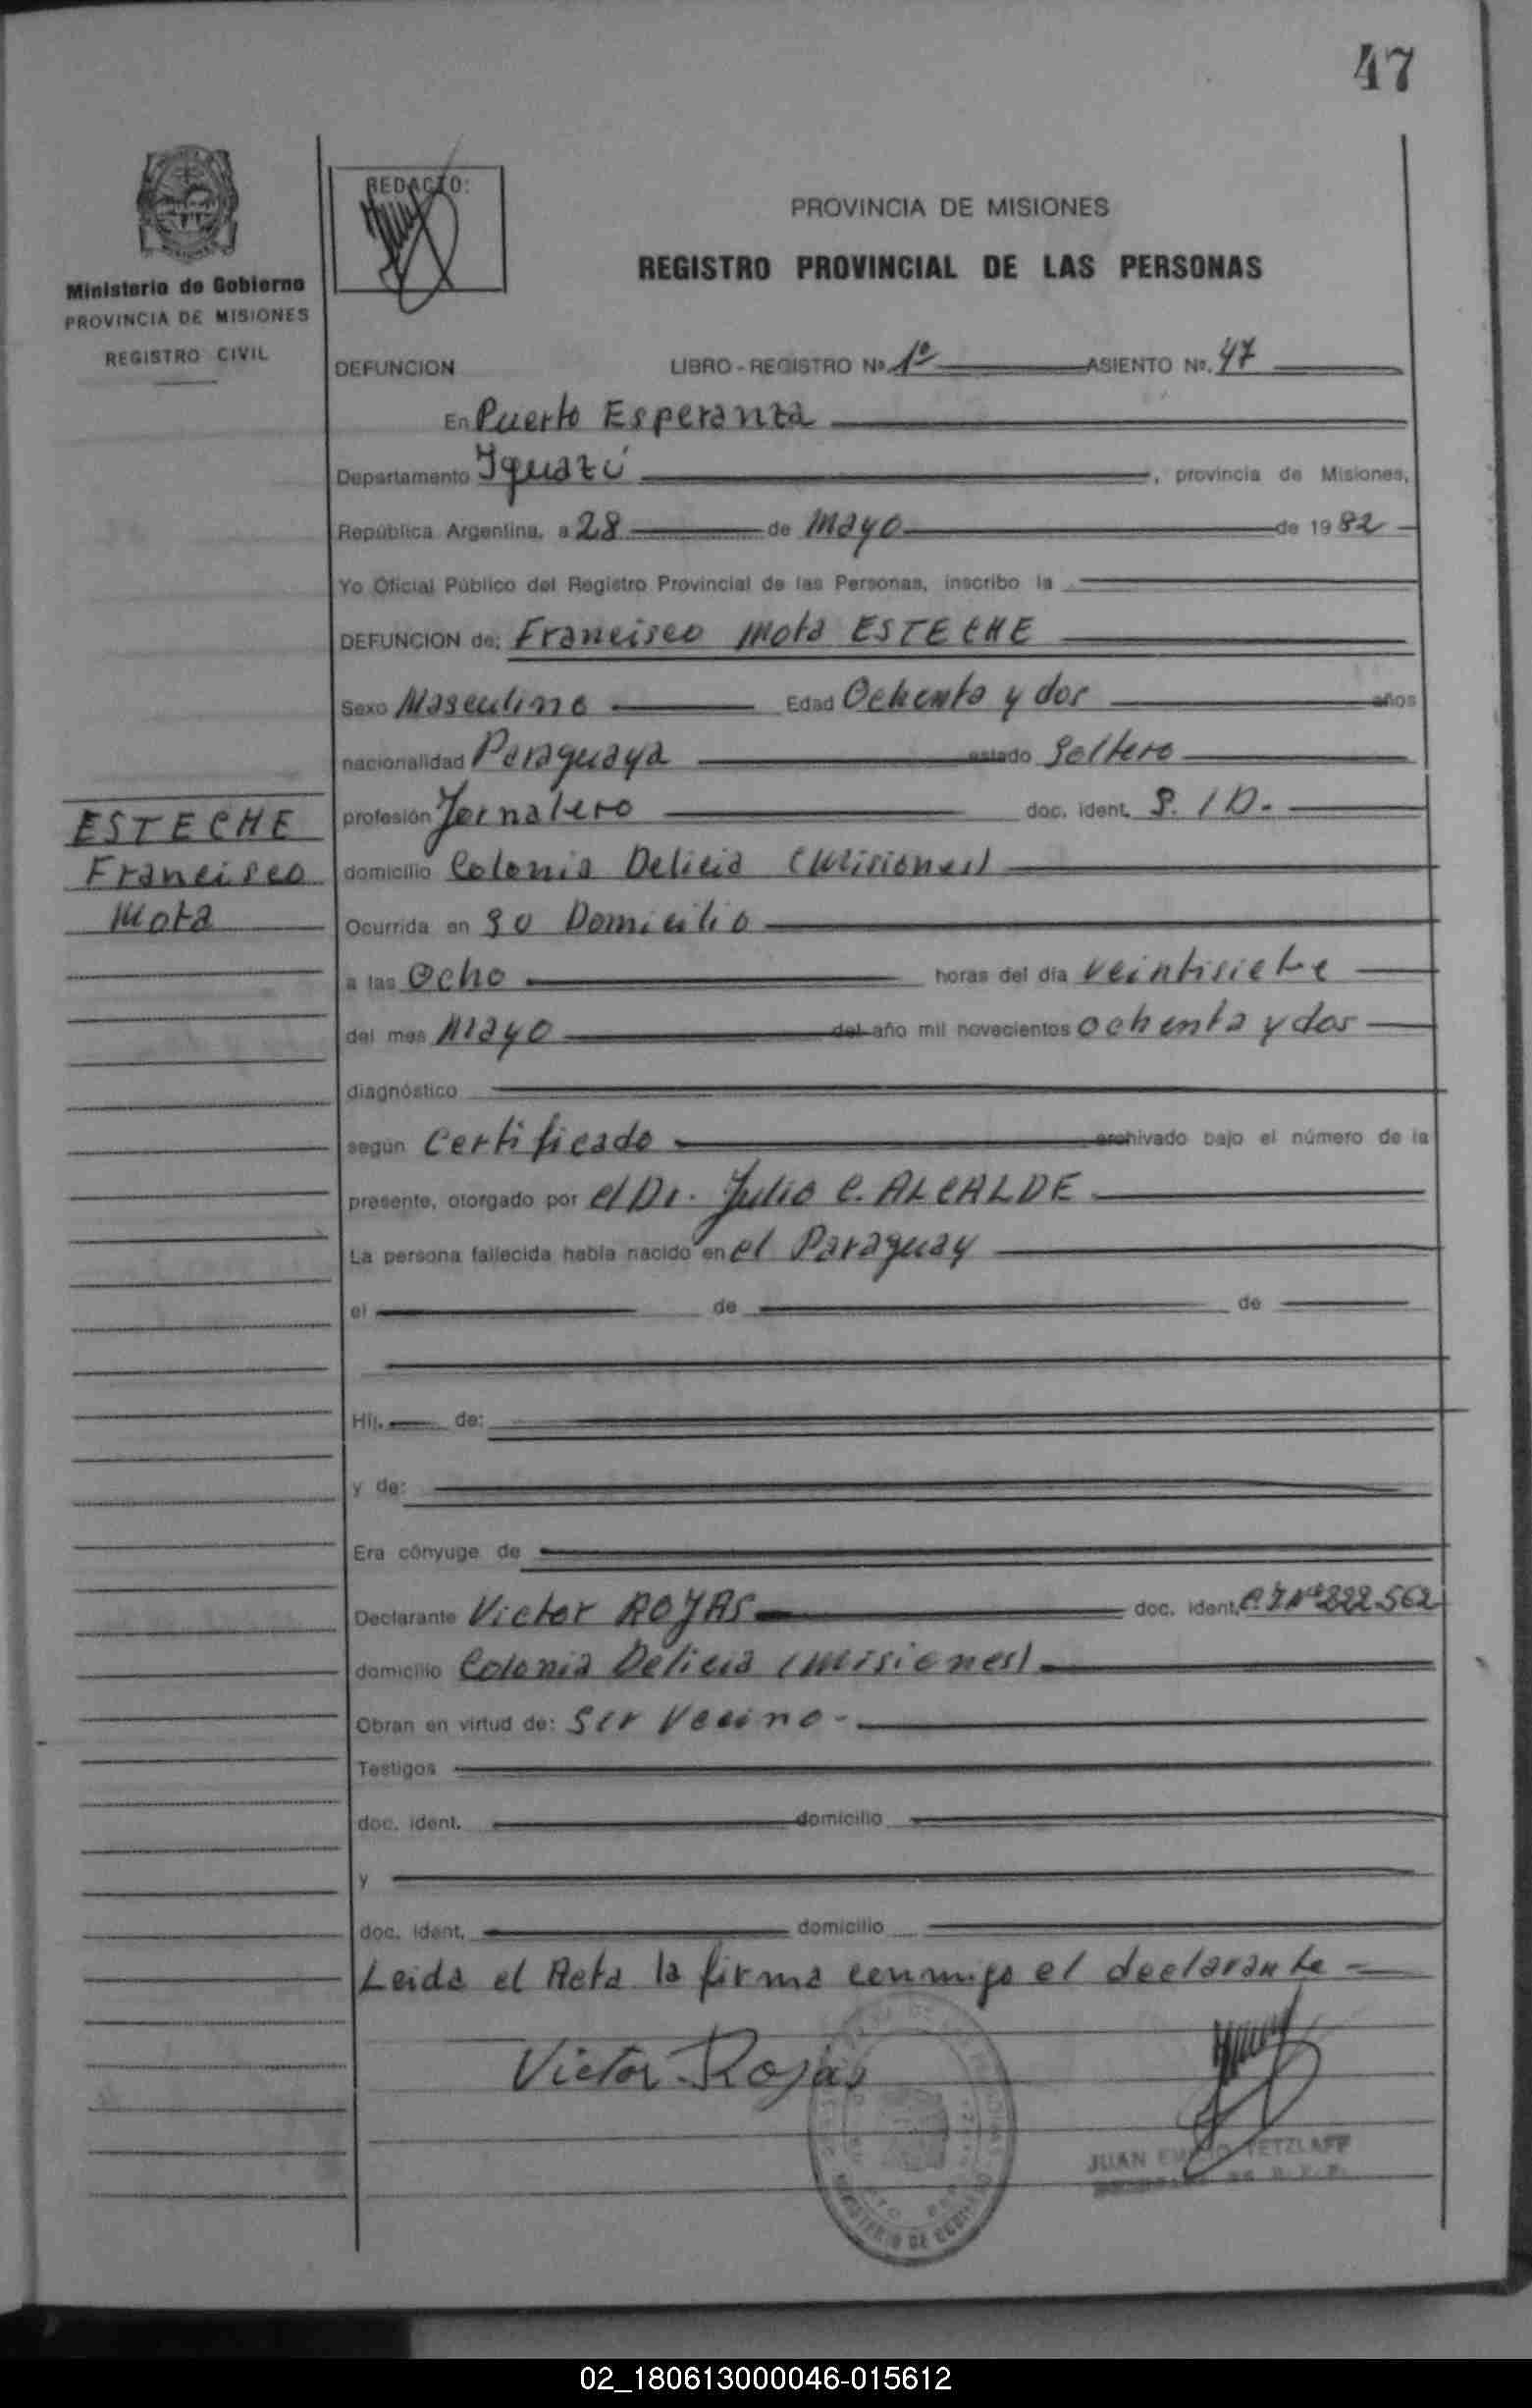 47
Ministerio de Gobierno
PROVINCIA DE MISIONES
REGISTRO CIVIL
REDACTO:
PROVINCIA DE MISIONES
REGISTRO PROVINCIAL DE LAS PERSONAS
DEFUNCION LIBRO - REGISTRO Nº 1º ASIENTO Nº. 47
En Puerto Esperanza
Departamento Iguazú, provincia de Misiones,
República Argentina, a 28 de Mayo de 1982
Yo Oficial Público del Registro Provincial de las Personas, inscribo la
DEFUNCION de: Francisco Mota ESTECHE
Sexo Masculino Edad Ochenta y dos años
nacionalidad Paraguaya estado Soltero
profesión Jornalero doc. ident. S. / D.
ESTECHE
Francisco
Mota
domicilio Colonia Delicia (Misiones)
Ocurrida en Su Domicilio
a las Ocho horas del día veintisiete
del mes Mayo del año mil novecientos ochenta y dos
diagnóstico
según Certificado archivado bajo el número de la
presente, otorgado por el Dr. Julio C. ALCALDE
La persona fallecida había nacido en el Paraguay
el de de
Hij. de:
y de:
Era cónyuge de
Declarante Victor ROJAS doc. ident. C.I Nº 222.562
domicilio Colonia Delicia (Misiones)
Obran en virtud de: Ser Vecino -
Testigos
doc. ident. domicilio
y
doc. ident. domicilio
Leida el Acta la firma conmigo el declarante
Victor Rojas
MINISTERIO DE GOBIERNO
JUAN TETZLAFF
02_180613000046-015612